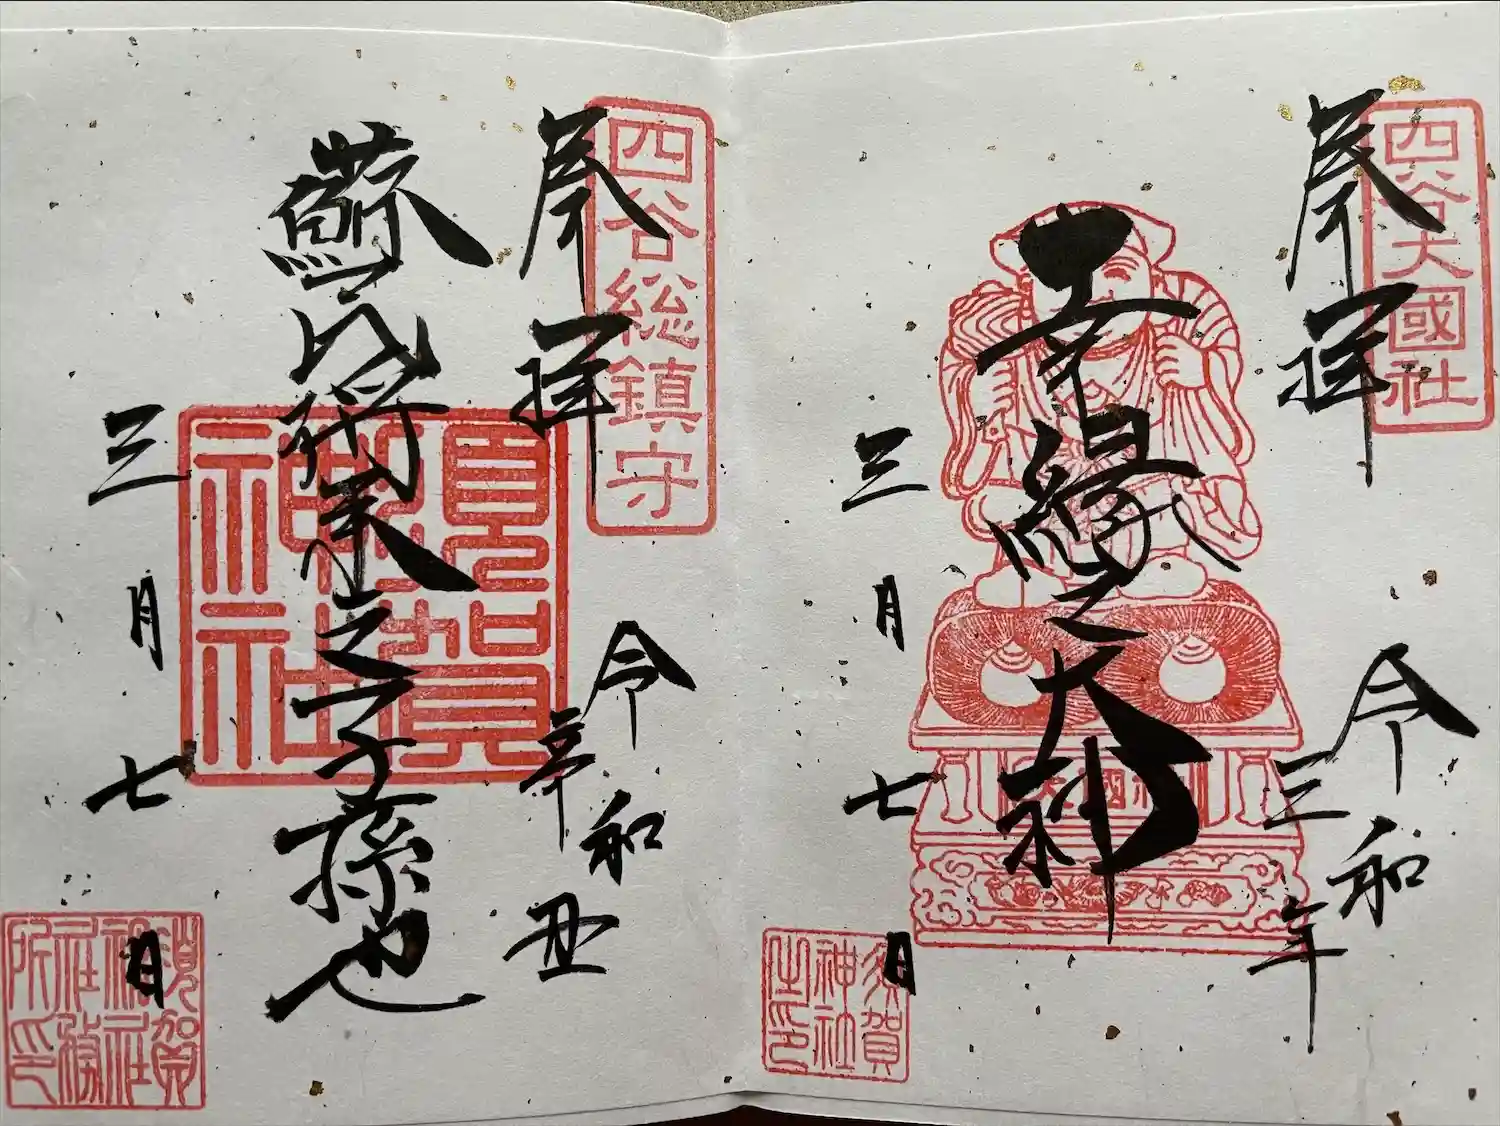 四谷大國社
奉拝
令和
三年
幸縁之大神
三月七日
須賀神社之印
四谷総鎮守
奉拝
令和
辛丑
蘇民将来之子孫也
須賀神社
三月七日
須賀神社社務所印